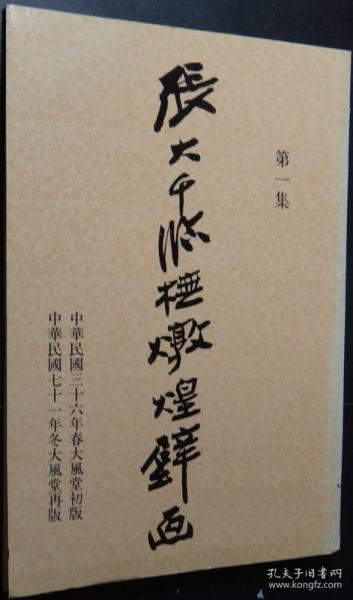 第一集
張大千臨橅燉煌壁画
中華民國三十六年春大風堂初版
中華民國七十一年冬大風堂再版
孔夫子旧书网
www.kongfz.com